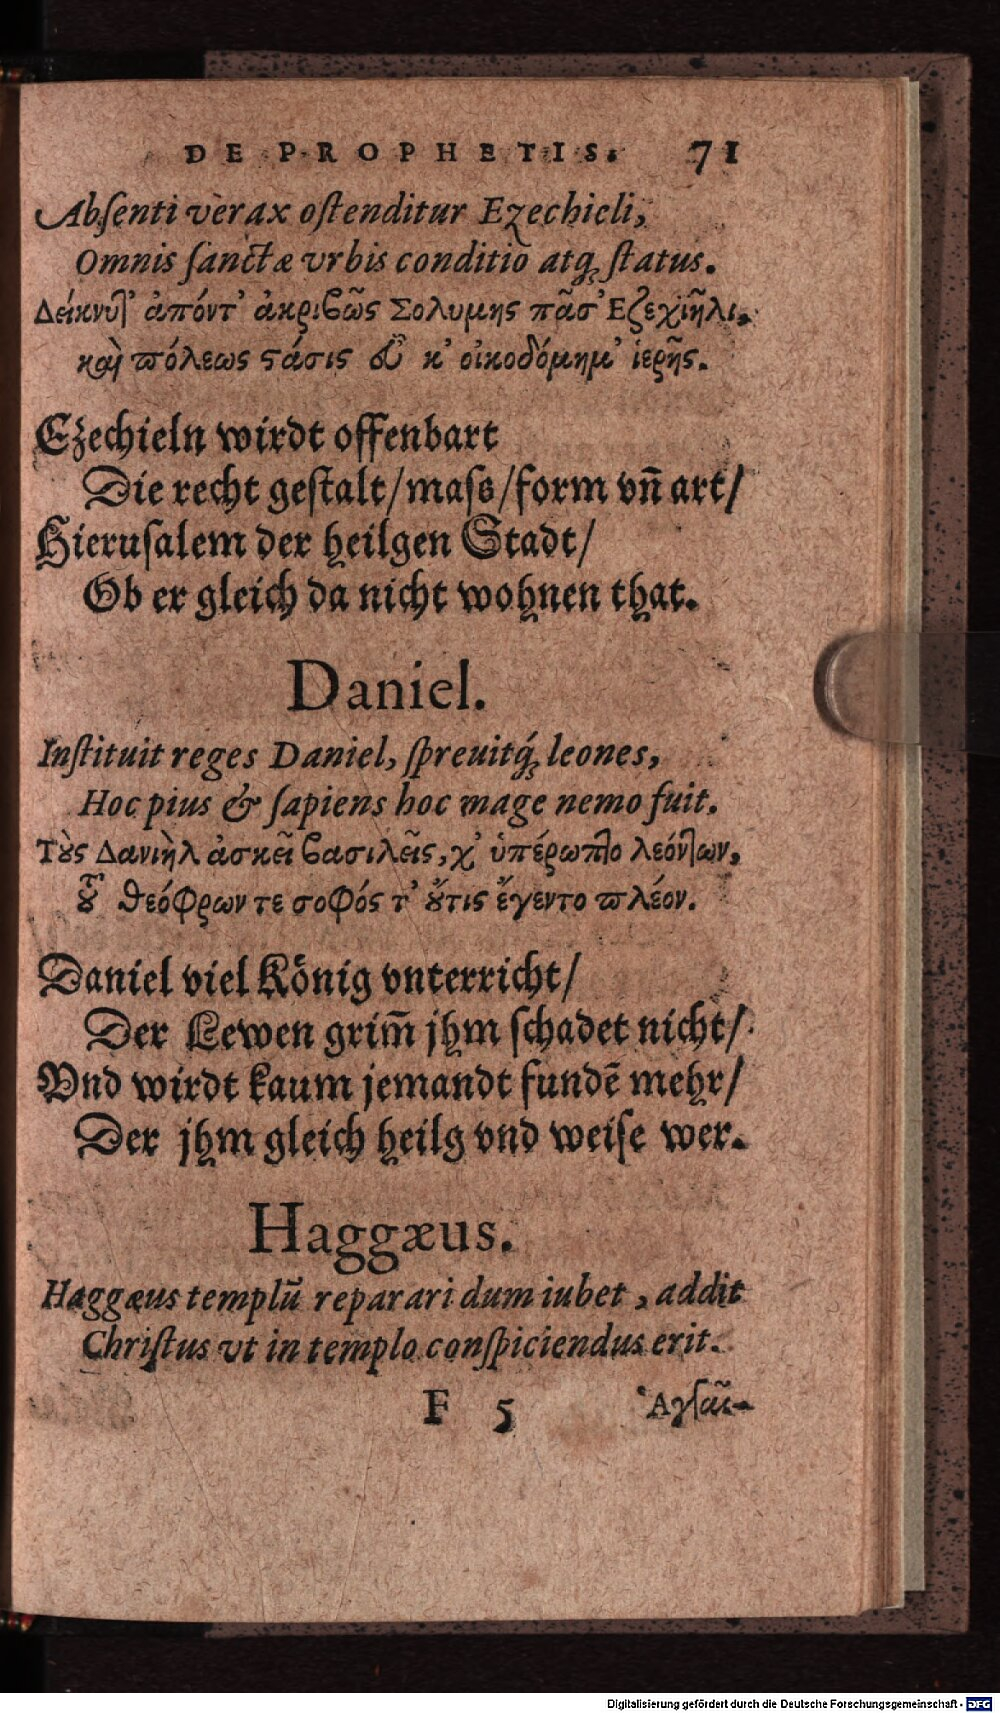 DE PROPHETIS. 71
Abſenti verax oſtenditur Ezechieli,
Omnis ſanctæ vrbis conditio atq́; ſtatus.
Δείκνυτ' ἀπόντ' ἀκριβῶς Σολυμης πᾶσ' Εζεχιῆλι,
καὶ πόλεως ϛάσις κ' οἰκοδόμημ' ἱερῆς.
Ezechieln wirdt offenbart
Die recht geſtalt/maſs/form vn̄ art/
Hieruſalem der heilgen Stadt/
Ob er gleich da nicht wohnen that.
Daniel.
Inſtituit reges Daniel, ſpreuitq́; leones,
Hoc pius & ſapiens hoc mage nemo fuit.
Τοὺς Δανιὴλ ἀσκεῖ βασιλεῖς, χ' ὑπέρωπτο λεόντων,
τοῦ θεόφρων τε σοφός τ' οὔτις ἔγεντο πλέον.
Daniel viel König vnterricht/
Der Lewen grim̄ jhm ſchadet nicht/
Vnd wirdt kaum jemandt fundē mehr/
Der jhm gleich heilg vnd weiſe wer.
Haggæus.
Haggæus templū reparari dum iubet, addit
Chriſtus vt in templo conſpiciendus erit.
F 5
Digitalisierung gefördert durch die Deutsche Forschungsgemeinschaft - DFG